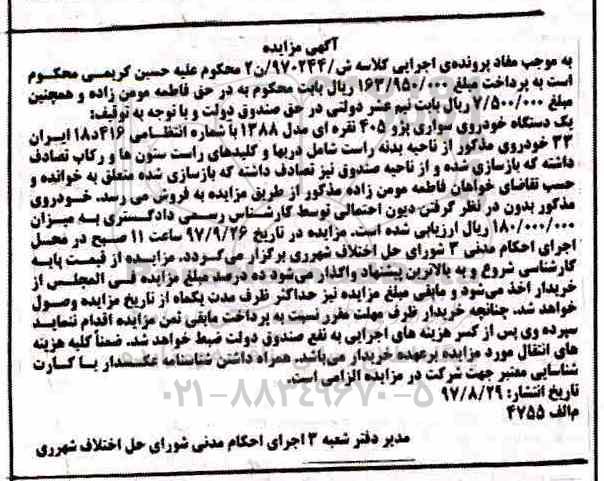 آگهی مزایده
به موجب مفاد پرونده‌ی اجرایی کلاسه ش/۹۷۰۲۴۴/ن۲ محکوم علیه حسین کریمی محکوم
است به پرداخت مبلغ ۱۶۳/۹۵۰/۰۰۰ ریال بابت محکوم به در حق فاطمه مومن زاده و همچنین
مبلغ ۷/۵۰۰/۰۰۰ ریال بابت نیم عشر دولتی در حق صندوق دولت و با توجه به توقیف:
یک دستگاه خودروی سواری پژو ۴۰۵ نقره ای مدل ۱۳۸۸ با شماره انتظامی ۴۱۶د۱۸ ایران
۳۳ خودروی مذکور از ناحیه بدنه راست شامل دربها و گلیدهای راست ستون ها و رکاب تصادف
داشته که بازسازی شده و از ناحیه صندوق نیز تصادف داشته که بازسازی شده متعلق به خوانده و
حسب تقاضای خواهان فاطمه مومن زاده مذکور از طریق مزایده به فروش می رسد. خودروی
مذکور بدون در نظر گرفتن دیون احتمالی توسط کارشناس رسمی دادگستری به میزان
۱۸۰/۰۰۰/۰۰۰ ریال ارزیابی شده است. مزایده در تاریخ ۹۷/۹/۲۶ ساعت ۱۱ صبح در محل
اجرای احکام مدنی ۳ شورای حل اختلاف شهرری برگزار می‌گردد. مزایده از قیمت پایه
کارشناسی شروع و به بالاترین پیشنهاد واگذار می‌شود ده درصد مبلغ مزایده فی المجلس از
خریدار اخذ می‌شود و مابقی مبلغ مزایده نیز حداکثر ظرف مدت یکماه از تاریخ مزایده وصول
خواهد شد. چنانچه خریدار ظرف مهلت مقرر نسبت به پرداخت مابقی ثمن مزایده اقدام ننماید
سپرده وی پس از کسر هزینه های اجرایی به نفع صندوق دولت ضبط خواهد شد. ضمناً کلیه هزینه
های انتقال مورد مزایده برعهده خریدار می‌باشد. همراه داشتن شناسنامه عکسدار یا کارت
شناسایی معتبر جهت شرکت در مزایده الزامی است.
تاریخ انتشار: ۹۷/۸/۲۹
۰۲۱-۸۸۳۴۹۶۷۰-۵
م‌الف ۴۷۵۵
مدیر دفتر شعبه ۳ اجرای احکام مدنی شورای حل اختلاف شهرری